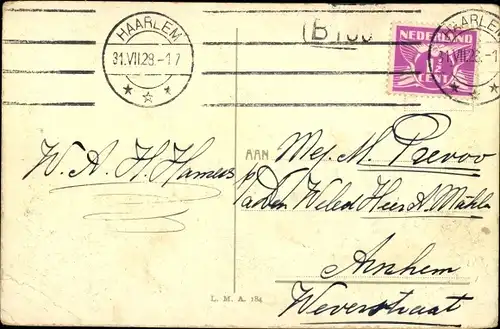 HAARLEM
31.VII.28.-17
NEDERLAND
CENT
HAARLEM
31.VII.28.-1
W. A. H. Hamers
AAN
Mej. M. Prevoo
p/a Den Weled Heer A. Mahler
Arnhem
Weverstraat
L. M. A. 184